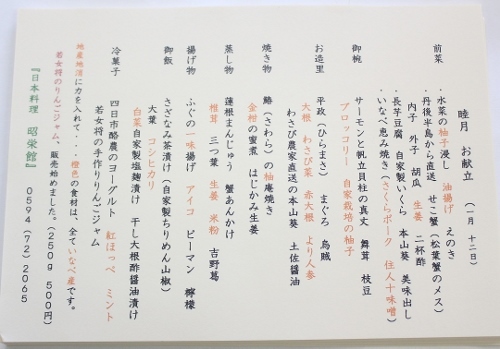 睦月 お献立 (一月 十二日)
前菜 ・水菜の柚子浸し 油揚げ えのき
・丹後半島から直送 せこ蟹(松葉蟹のメス)
内子 外子 胡瓜 生姜 二杯酢
・長芋豆腐 自家製いくら 本山葵 美味出し
・いなべ恵み焼き(さくらポーク 住人十味噌)
御椀 サーモンと帆立貝柱の真丈 舞茸 枝豆
ブロッコリー 自家栽培の柚子
お造里 平政(ひらまさ) まぐろ 烏賊
大根 わさび菜 赤大根 より人参
わさび農家直送の本山葵 土佐醤油
焼き物 鰆(さわら)の柚庵焼き
金柑の蜜煮 はじかみ生姜
蒸し物 蓮根まんじゅう 蟹あんかけ
椎茸 三つ葉 生姜 米粉 吉野葛
揚げ物 ふぐの一味揚げ アイコ ピーマン 檸檬
御飯 さざなみ茶漬け(自家製ちりめん山椒)
大葉 コシヒカリ
白菜自家製塩麹漬け 干し大根酢醤油漬け
冷菓子 四日市酪農のヨーグルト 紅ほっぺ ミント
若女将の手作りりんごジャム
地産地消に力を入れて・・橙色の食材は、全ていなべ産です。
若女将のりんごジャム、販売始めました。(250g 500円)
『日本料理 昭栄館』 0594(72)2065